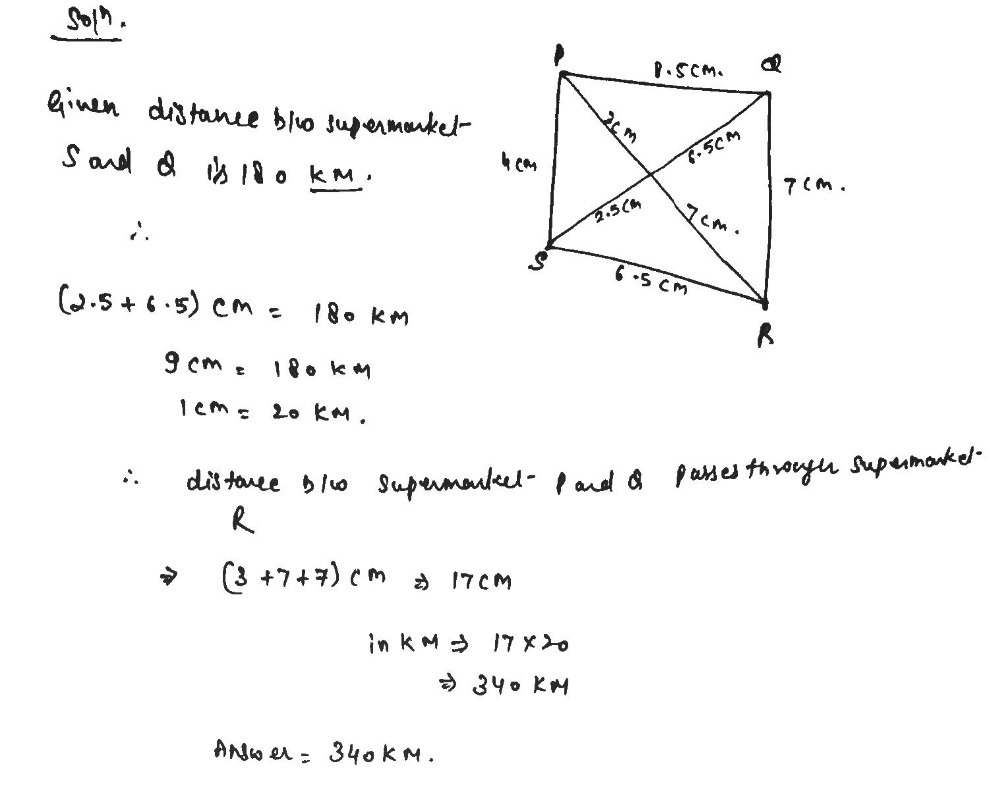 Soln.
P
8.5 cm.
Q
Given distance b/w supermarket
S and Q is 180 KM.
4 cm
3cm
6.5cm
7 cm.
2.5cm
7cm.
∴
S
6.5 cm
R
(2.5 + 6.5) cm = 180 KM
9 cm = 180 KM
1 cm = 20 KM.
∴ distance b/w supermarket P and Q passes through supermarket
R
⇒ (3 + 7 + 7) cm ⇒ 17 CM
in KM ⇒ 17 × 20
⇒ 340 KM
Answer = 340 KM.